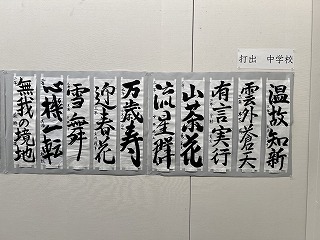 打出 中学校
温故知新
雲外蒼天
有言実行
山茶花
流星群
万歳寿
迎春花
雪舞
心機一転
無我の境地